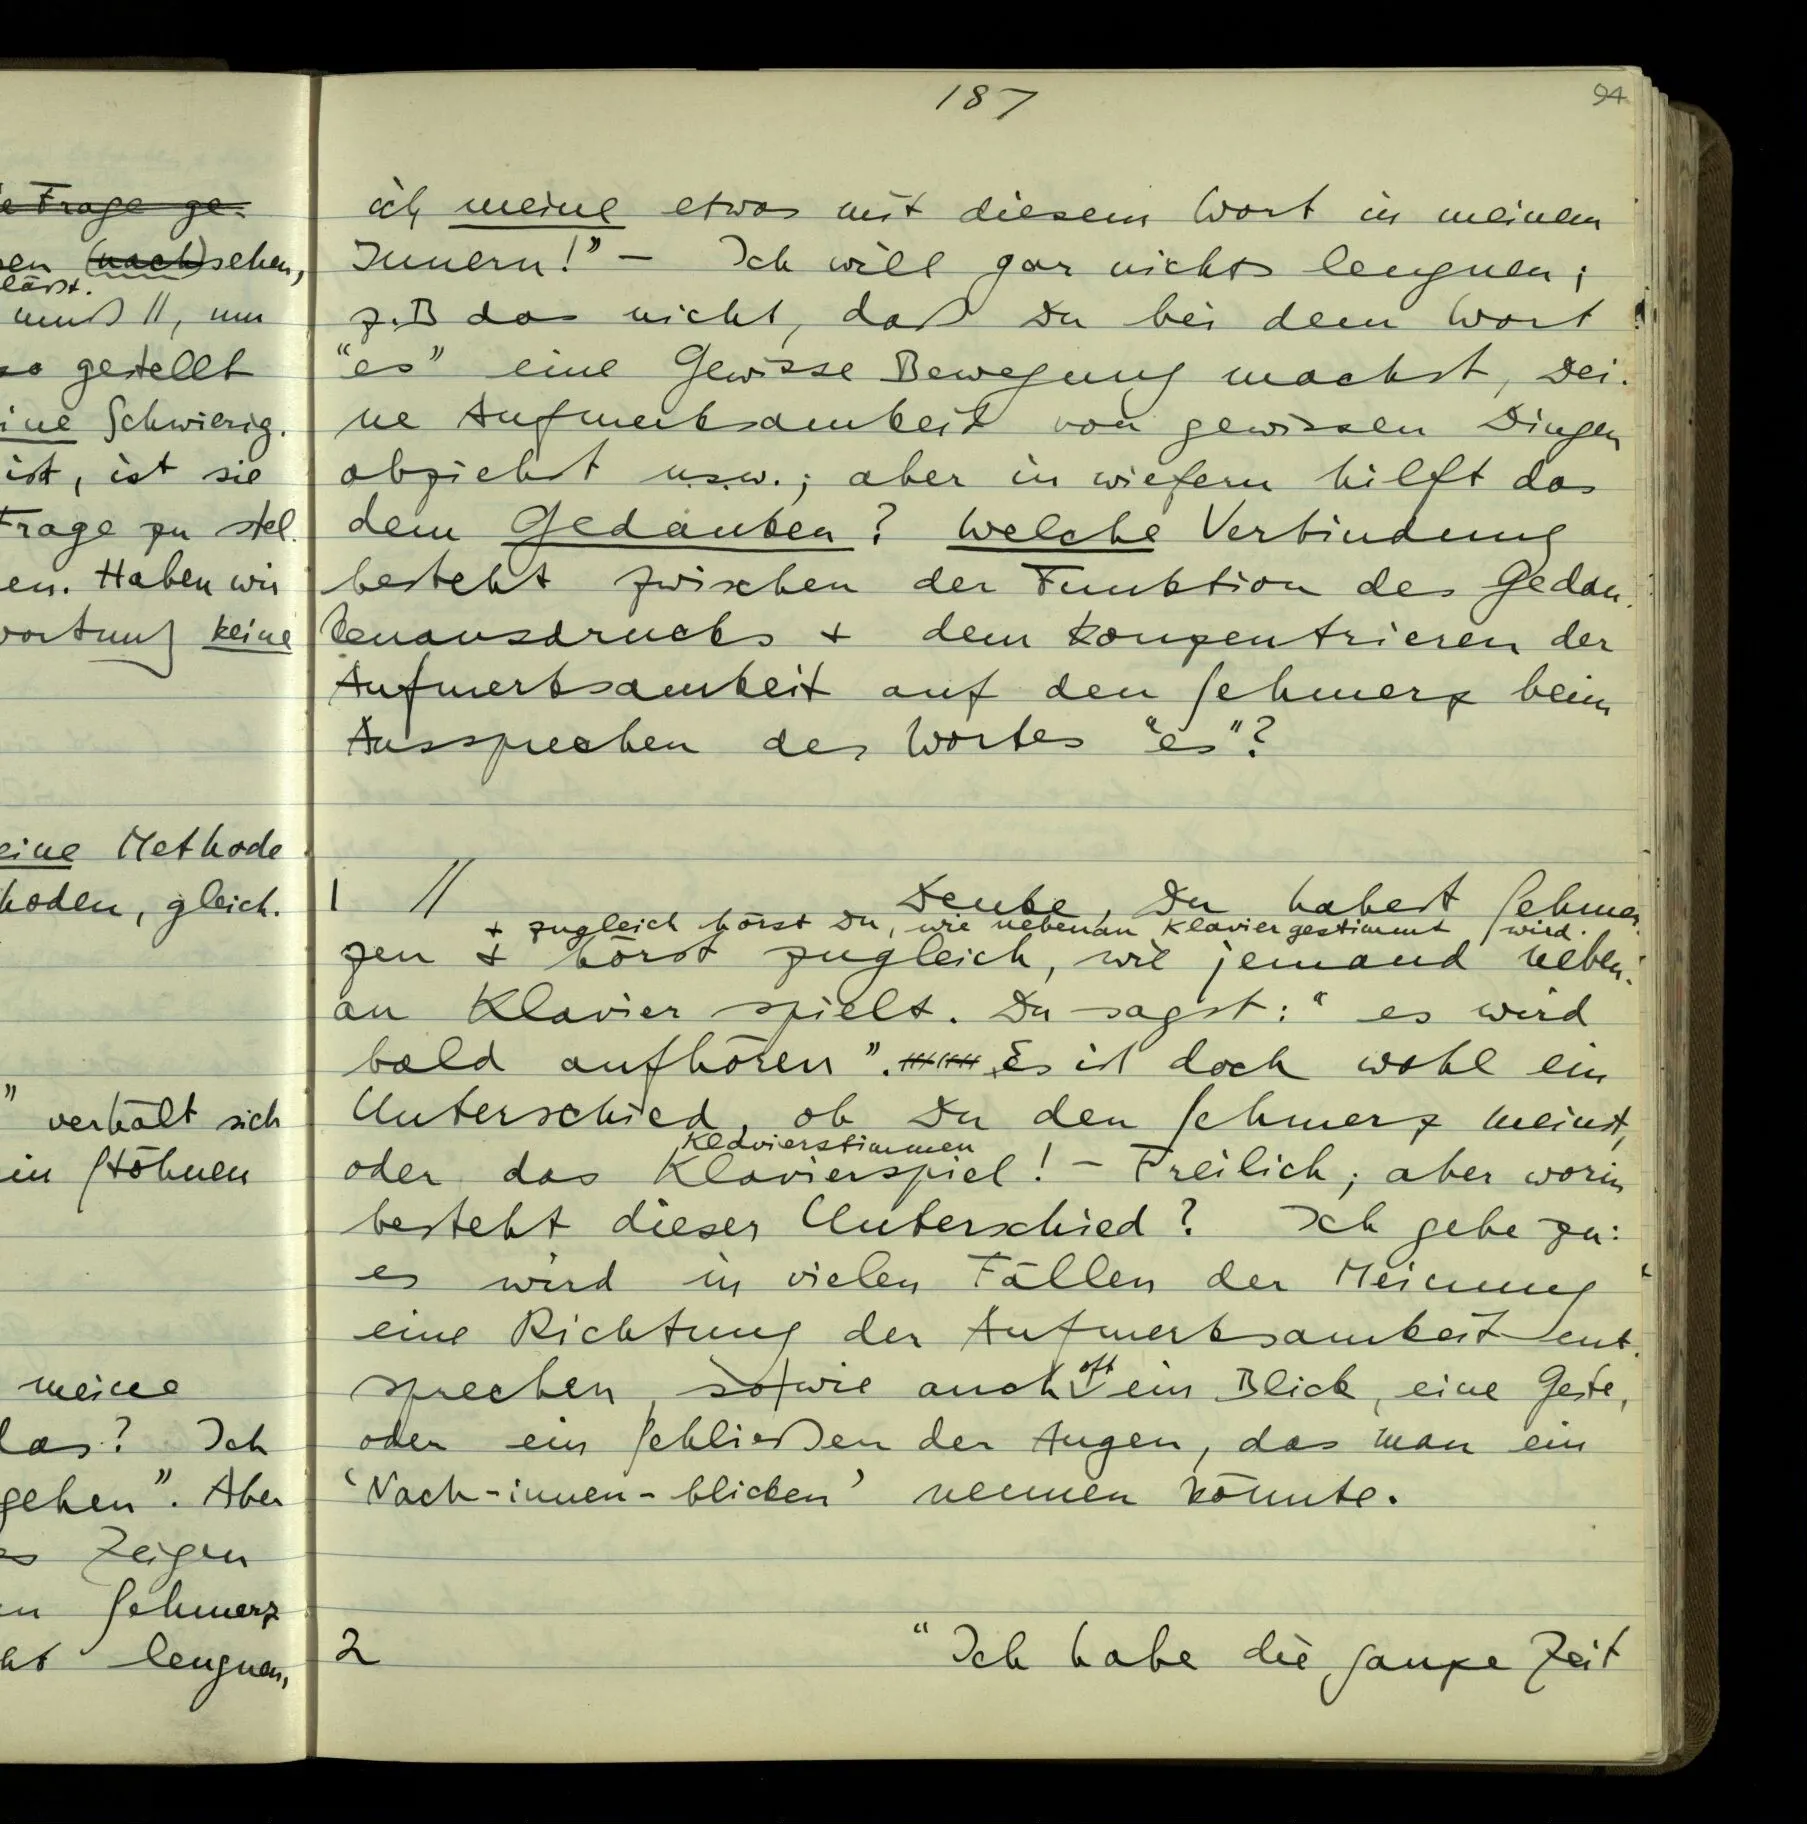 187
94
ie Frage ge-
en (nach)sehen,
läßt.
muß ||, um
so gestellt
ine Schwierig-
ist, ist sie
Frage zu stel-
en. Haben wir
wortung keine
eine Methode
hoden, gleich-
” verhält sich
in Stöhnen
meine
das? Ich
gehen”. Aber
es Zeigen
en Schmerz
ht leugnen,
ich meine etwas mit diesem Wort in meinem
Innern!” – Ich will gar nichts leugnen;
z.B das nicht, daß Du bei dem Wort
“es” eine Gewisse Bewegung machst, Dei-
ne Aufmerksamkeit von gewissen Dingen
abziehst u.s.w.; aber in wiefern hilft das
dem Gedanken? Welche Verbindung
besteht zwischen der Funktion des Gedan-
kenausdrucks + dem Konzentrieren der
Aufmerksamkeit auf den Schmerz beim
Aussprechen des Wortes “es”?
1 || Denke, Du habest Schmer-
+ zugleich hörst Du, wie nebenan Klavier gestimmt wird.
zen + hörst zugleich, wie jemand neben-
an Klavier spielt. Du sagst: “es wird
bald aufhören”. Es ist doch wohl ein
Unterschied, ob Du den Schmerz meinst,
Klavierstimmen
oder das Klavierspiel! – Freilich; aber worin
besteht dieser Unterschied? Ich gebe zu:
es wird in vielen Fällen der Meinung
eine Richtung der Aufmerksamkeit ent-
sprechen, so wie auch oft ein Blick, eine Geste,
oder ein Schließen der Augen, das man ein
‘Nach-innen-blicken’ nennen könnte.
2 “Ich habe die ganze Zeit